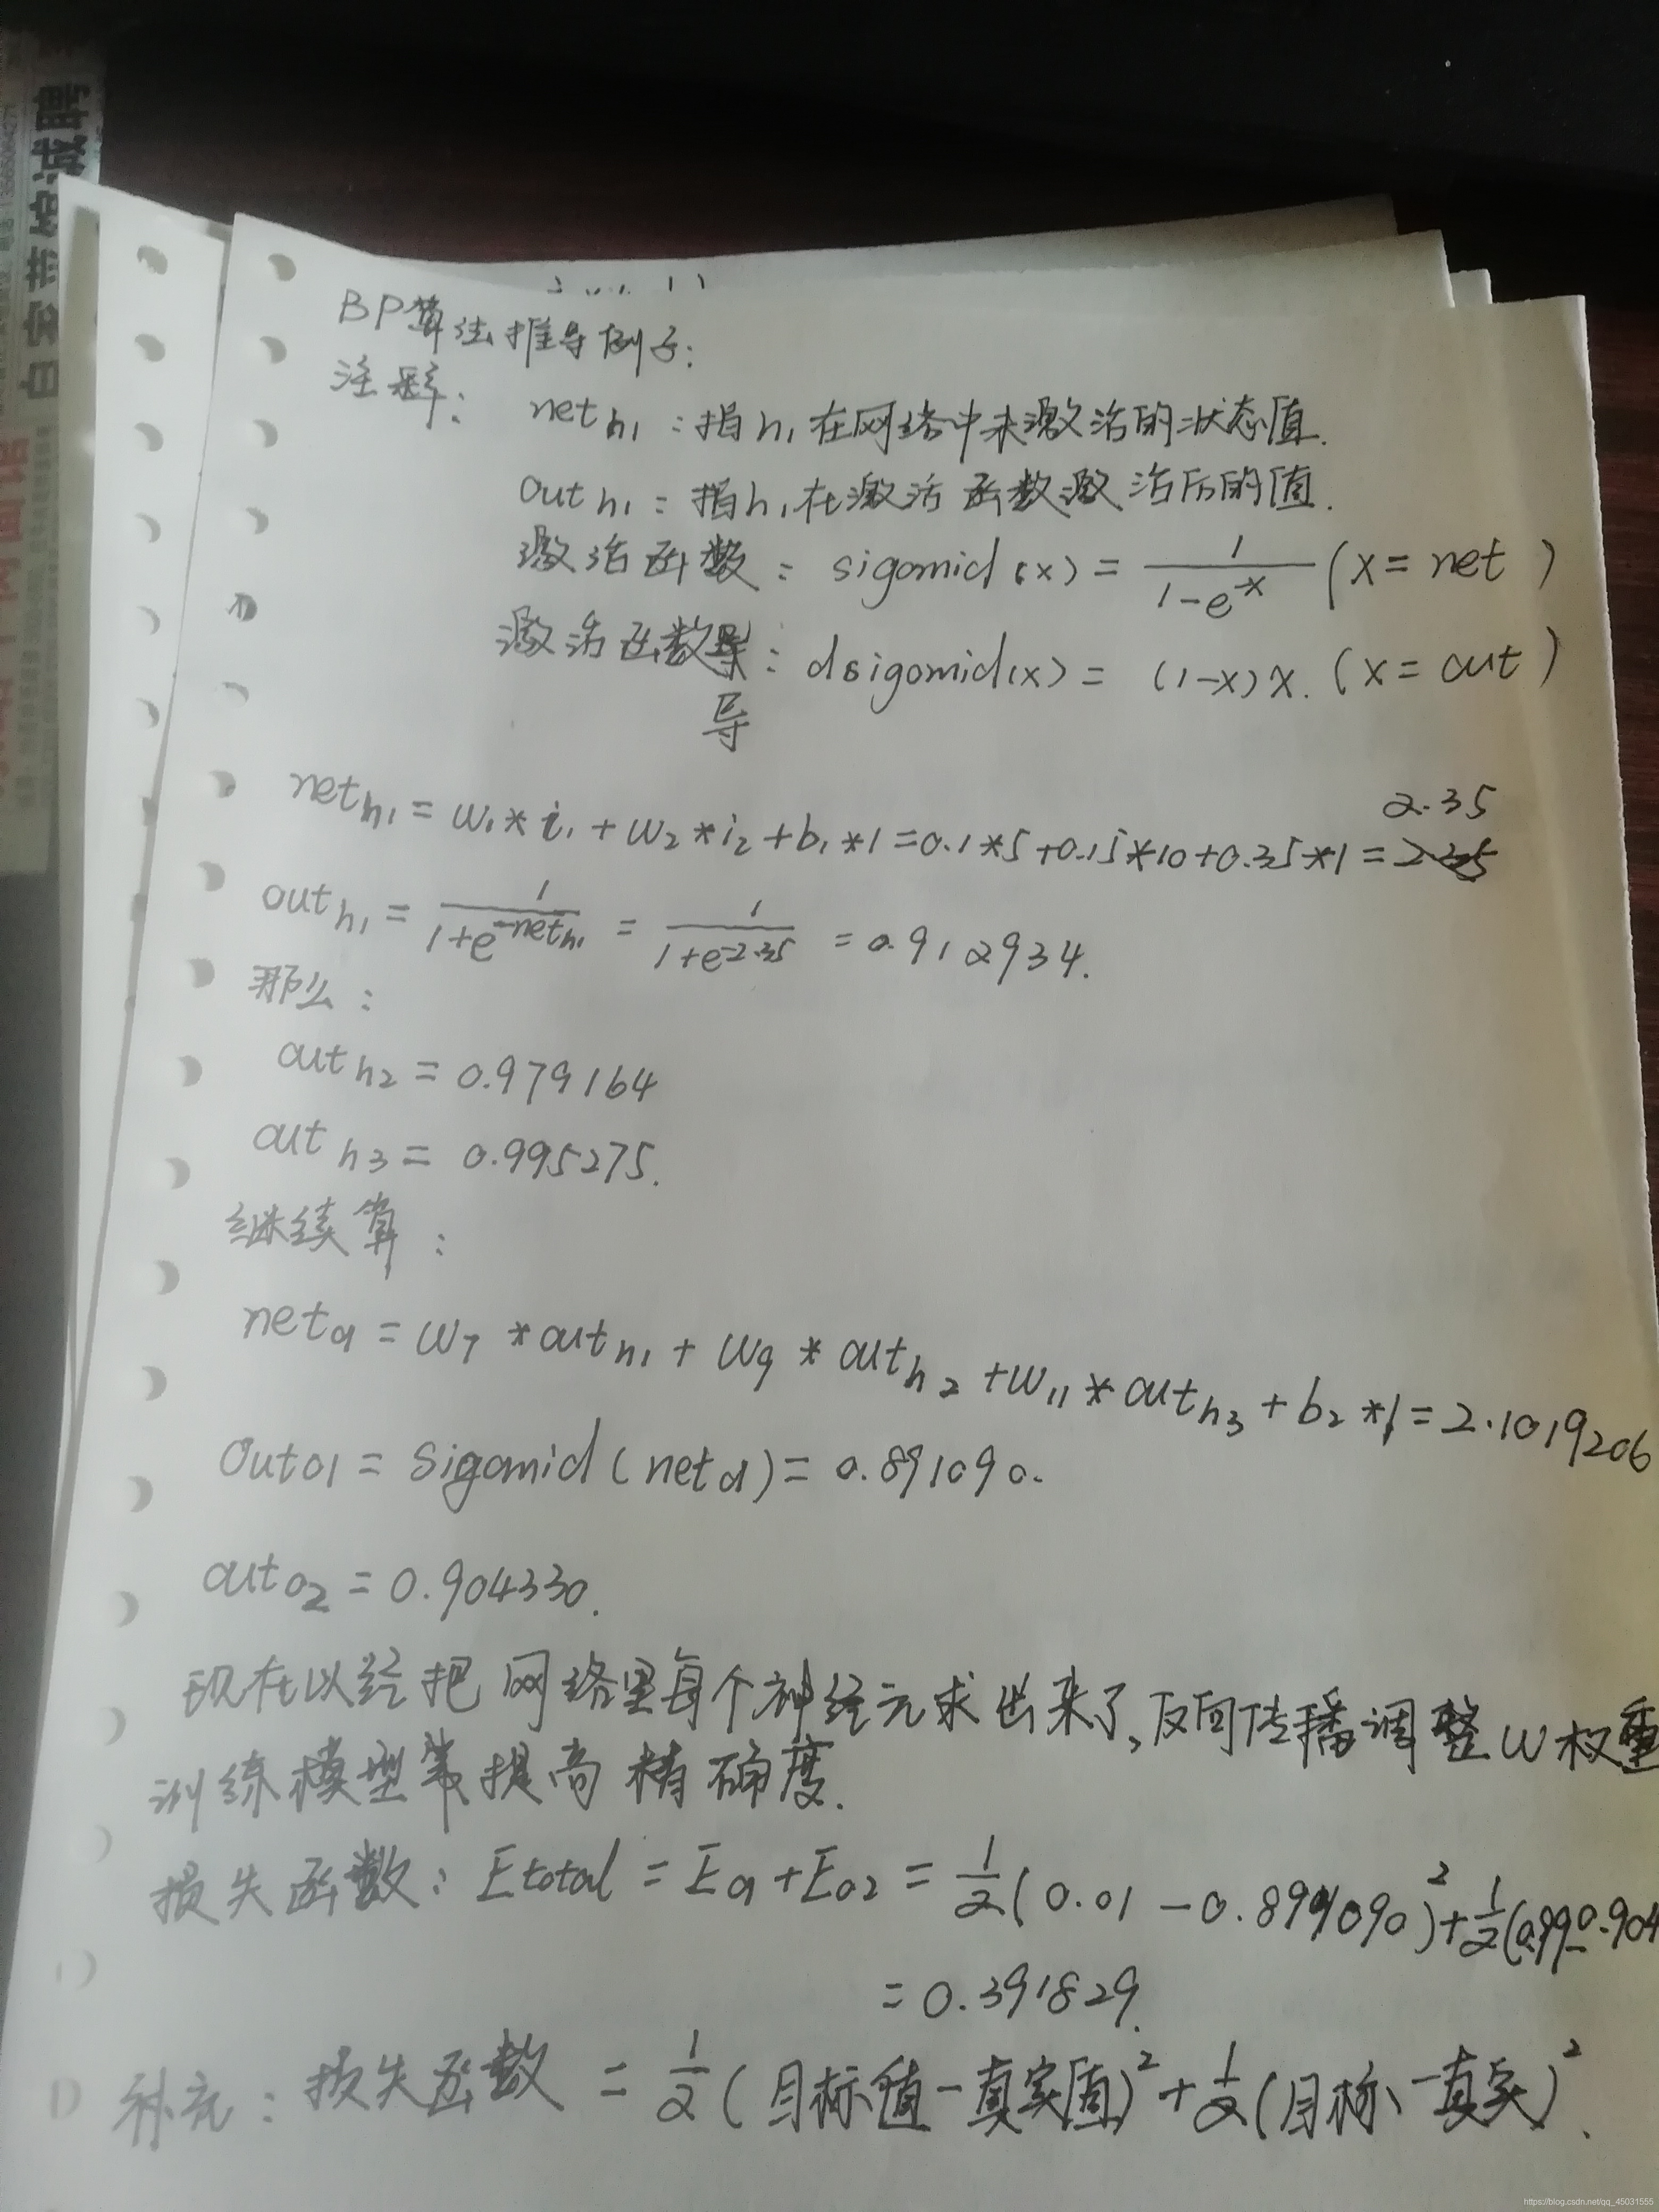 BP算法推导例子:
注释: net h1 : 指h1在网络中未激活的状态值.
out h1 : 指h1在激活函数激活后的值.
激活函数: sigomid(x) = 1/(1-e^-x) (x = net )
激活函数导: dsigomid(x) = (1-x)x. (x = out )
导
net h1 = w1 * i1 + w2 * i2 + b1 * 1 = 0.1*5+0.15*10+0.35*1 = 2.35
out h1 = 1/(1+e^-net h1) = 1/(1+e^-2.35) = 0.912934.
那么:
out h2 = 0.979164
out h3 = 0.995275.
继续算:
net o1 = w7 * out h1 + w9 * out h2 + w11 * out h3 + b2 *1 = 2.1019206
Out o1 = sigomid(net o1) = 0.891090.
out o2 = 0.904330.
现在以经把网络里每个神经元求出来了,反向传播调整w权重
训练模型等提高精确度.
损失函数: Etotal = Eo1 + Eo2 = 1/2(0.01 - 0.891090)^2 + 1/2(0.99-0.904
= 0.391829.
补充: 损失函数 = 1/2(目标值-真实值)^2 + 1/2(目标、-真实)^2.
https://blog.csdn.net/qq_45031555